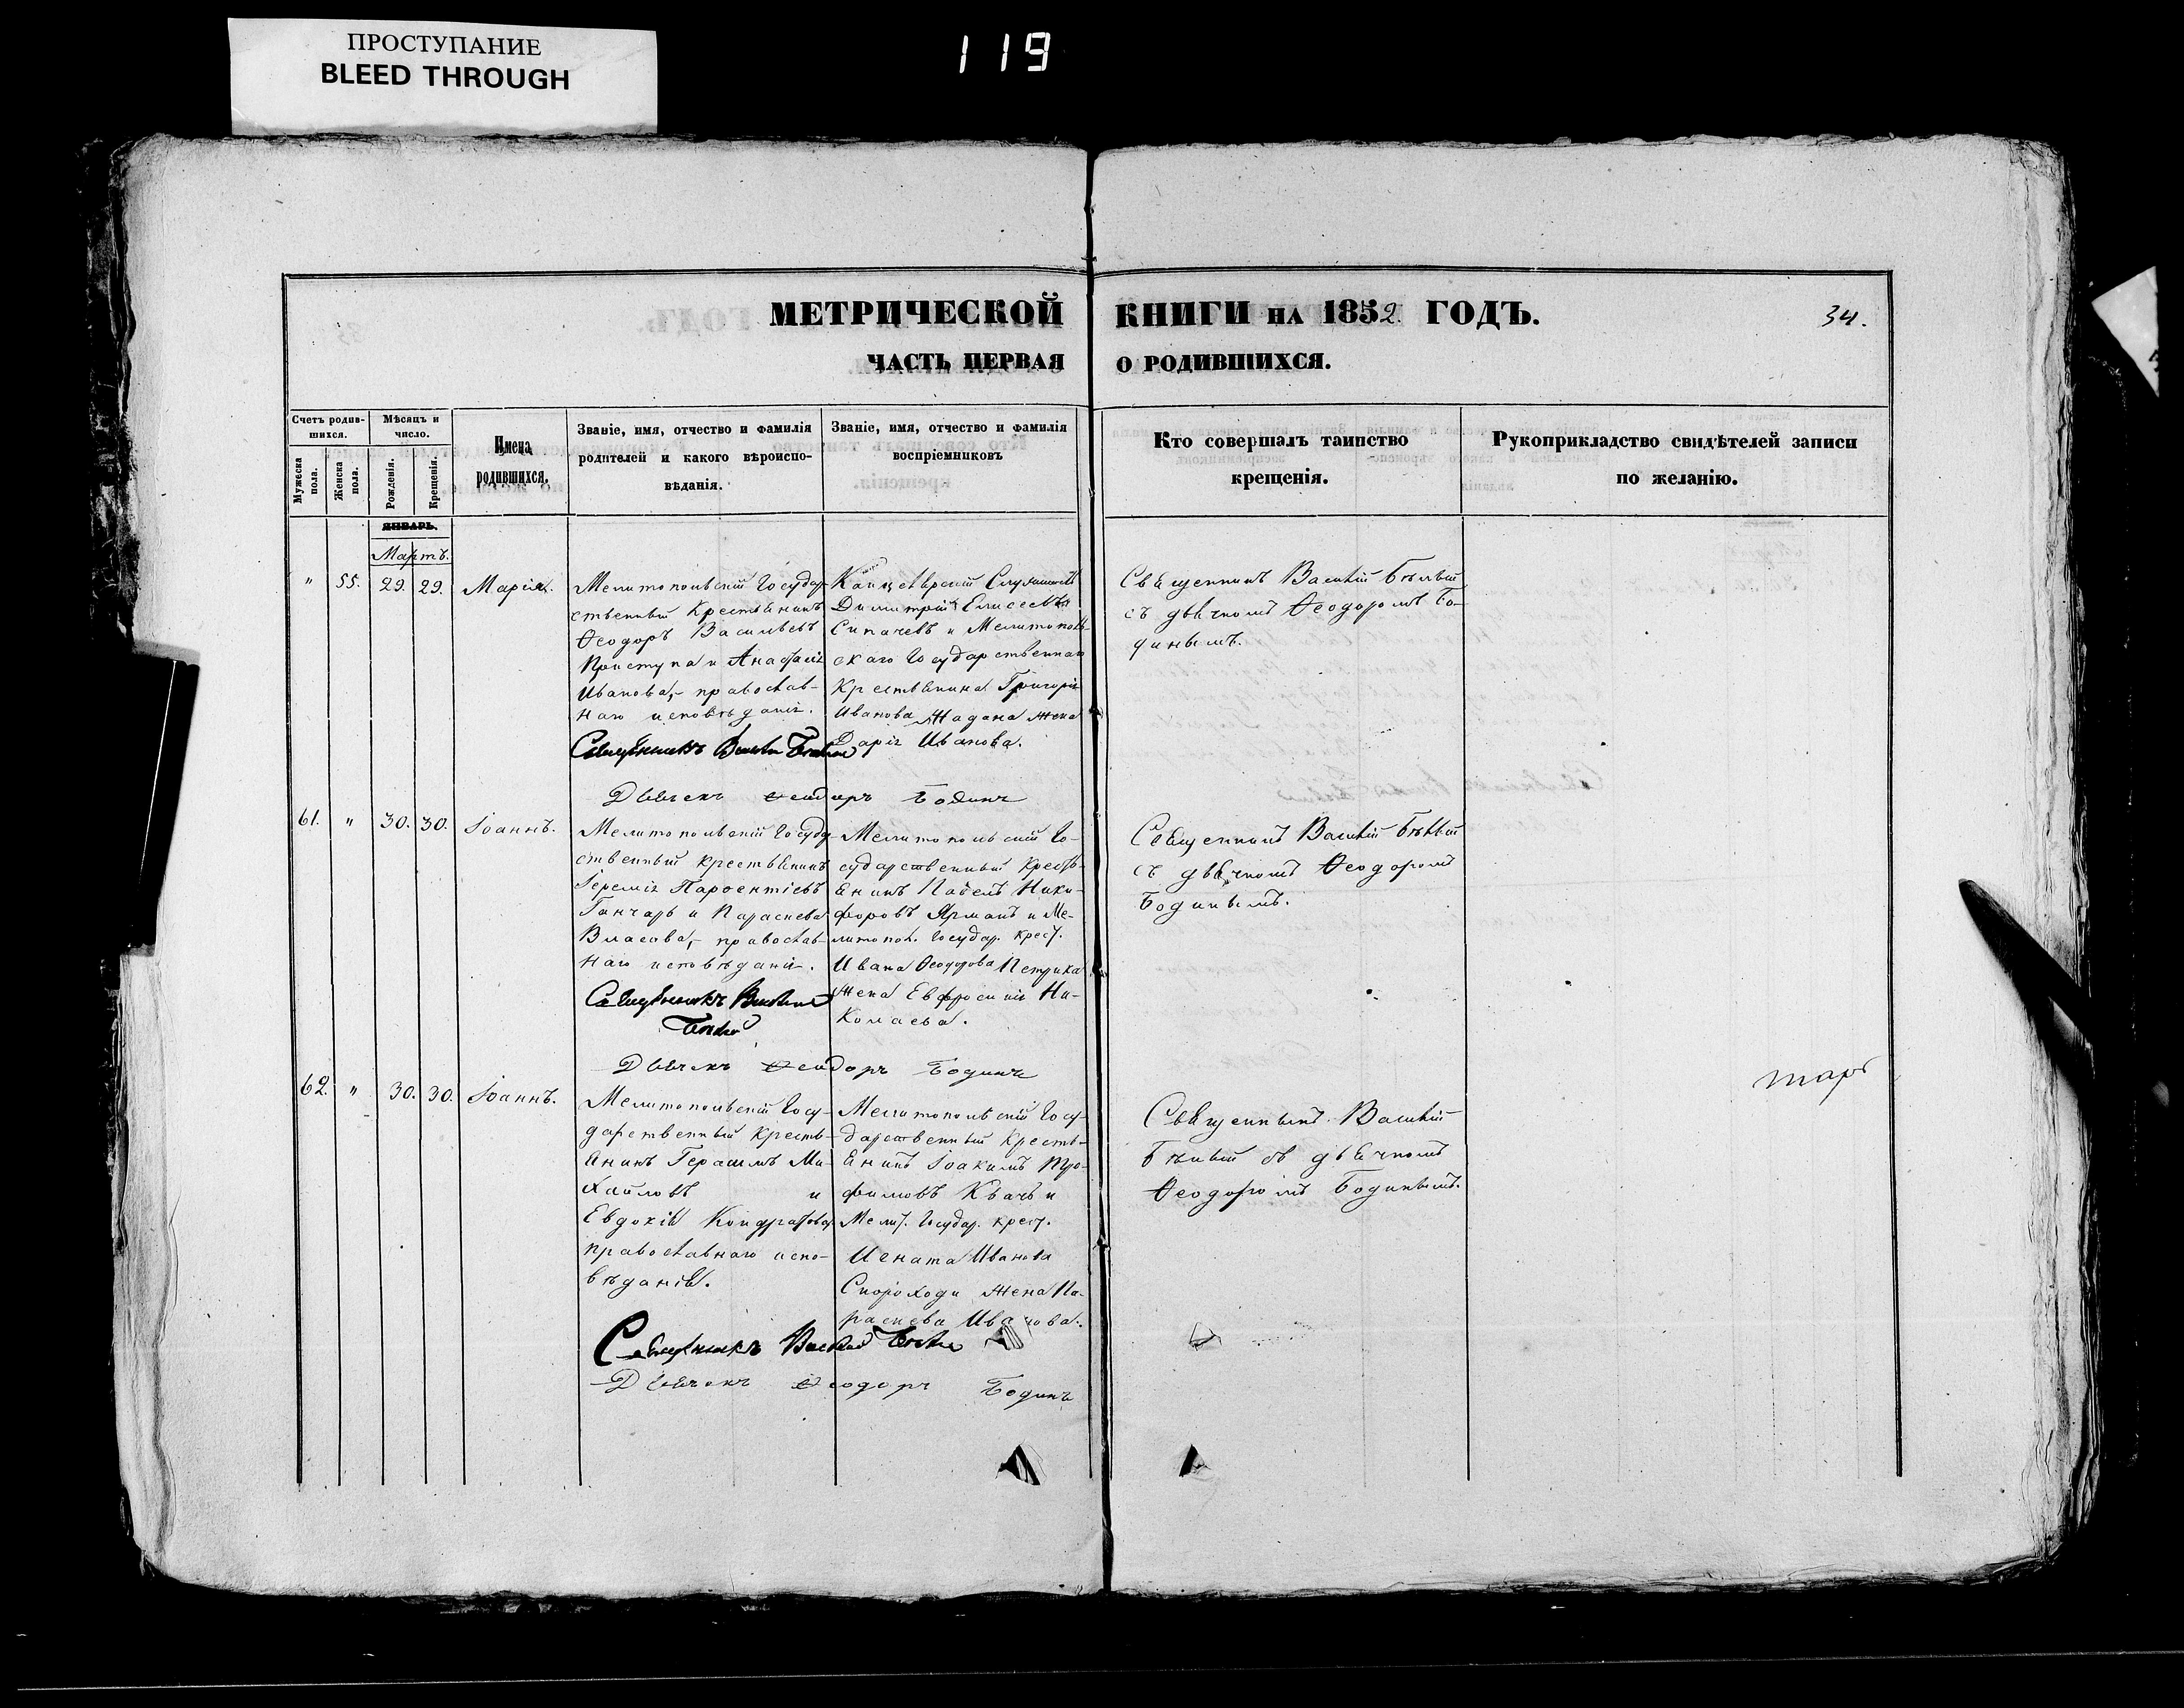 ПРОСТУПАНИЕ
BLEED THROUGH
119
МЕТРИЧЕСКОЙ КНИГИ НА 1852. ГОДЪ.
34.
ЧАСТЬ ПЕРВАЯ О РОДИВШИХСЯ.
Счетъ родив-
шихся.
Мужеска
пола.
Женска
пола.
Мѣсяцъ и
число.
Рожденія.
Крещенія.
Имена
родившихся.
Званіе, имя, отчество и фамилія
родителей и какого вѣроиспо-
вѣданія.
Званіе, имя, отчество и фамилія
воспріемниковъ
Кто совершалъ таинство
крещенія.
Рукоприкладство свидѣтелей записи
по желанію.
ЯНВАРЬ.
Мартъ.
" 55. 29. 29. Марія.
Мелитопольскій Государ-
ственный Крестьянинъ
Ѳеодоръ Васильевъ
Приступа и Анафасія
Иванова,- православ-
наго исповѣданія.
Священникъ Василій Бѣлый
Дьячекъ Ѳеодоръ Бодинъ
Канцелярскій Служитель
Димитрій Елисеевъ
Сипачевъ и Мелитополь-
скаго Государственнаго
Крестьянина Григорія
Иванова Жадана жена
Дарія Иванова.
Священникъ Василій Бѣлый
съ дьячкомъ Ѳеодоромъ Бо-
динымъ.
61. " 30. 30. Іоаннъ.
Мелитопольскій Госуда-
ственный крестьянинъ
Іеремія Парѳентіевъ
Ганчарь и Параскева
Власова,- православ-
наго исповѣданія.
Священникъ Василій
Бѣлый
Дьячекъ Ѳеодоръ Бодинъ
Мелитопольскій Го-
сударственный Кресть-
янинъ Павелъ Ники-
форовъ Ярмакъ и Ме-
литопол. Государ. крест.
Ивана Ѳеодорова Петрика
жена Евфросинія Ни-
колаева.
Священникъ Василій Бѣлый
съ дьячкомъ Ѳеодоромъ
Бодинымъ.
62. " 30. 30. Іоаннъ.
Мелитопольскій Госу-
дарственный кресть-
янинъ Герасимъ Ми-
хайловъ и
Евдокія Кондратова
православнаго испо-
вѣданія.
Священникъ Василій Бѣлый
Дьячекъ Ѳеодоръ Бодинъ
Мелитопольскій Госу-
дарственный Кресть-
янинъ Іоакимъ Тро-
фимовъ Квачъ и
Мелит. Государ. крест.
Игната Иванова
Скороходи жена Па-
раскева Иванова.
Священникъ Василій
Бѣлый съ дьячкомъ
Ѳеодоромъ Бодинымъ.